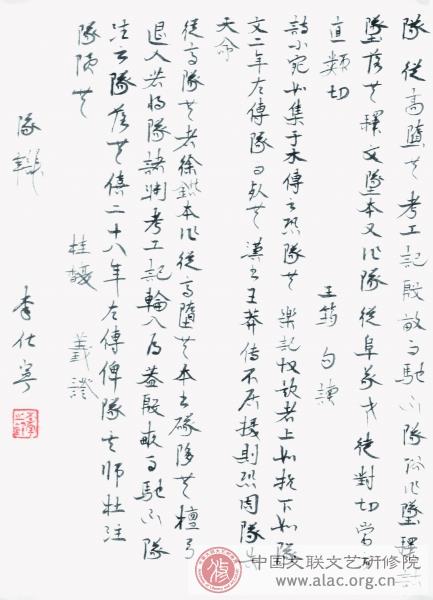 隊 從高隊也考工記殷畝而馳不隊俗作墜釋詁
墜落也釋文墜本又作隊從阜㒸聲徒對切當
直類切 王筠句讀
詩小宛如集于木傳云恐隊也樂記故歌者上如抗下如隊
文二年左傳隊命也漢書王莽傳不居攝則恐周隊失
天命
從高隊也者徐鍇本作從高墮也本書磒隊也檀弓
退人若將隊諸淵考工記輪人為蓋殷畝而馳不隊
注云隊落也僖二十八年左傳俾隊其師杜注
隊隕也 桂馥義證
隊
李仕寧
中国文联文艺研修院
www.alac.org.cn